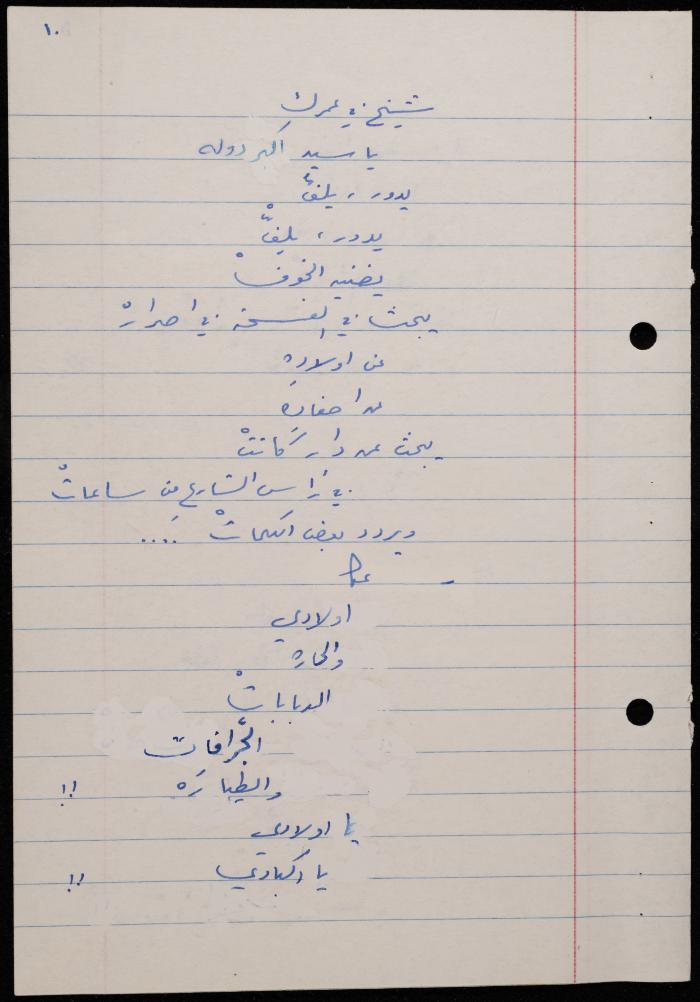 ١٠
شيخ في عمرك
يا سيد اكبر دوله
يدور ، يلفّ
يدور ، يلفّْ
يضنيه الخوفْ
يبحث في الفسحة في اصرارْ
عن اولادِه
عن احفادِه
يبحث عن دارٍ كانتْ
في رأس الشارع من ساعاتْ
ويردد بعض الكلماتْ ....
-
اولادي
والحاره
الدباباتْ
الجَّرافات
والطيارَه !!
يا اولادي
يا اكبادي !!